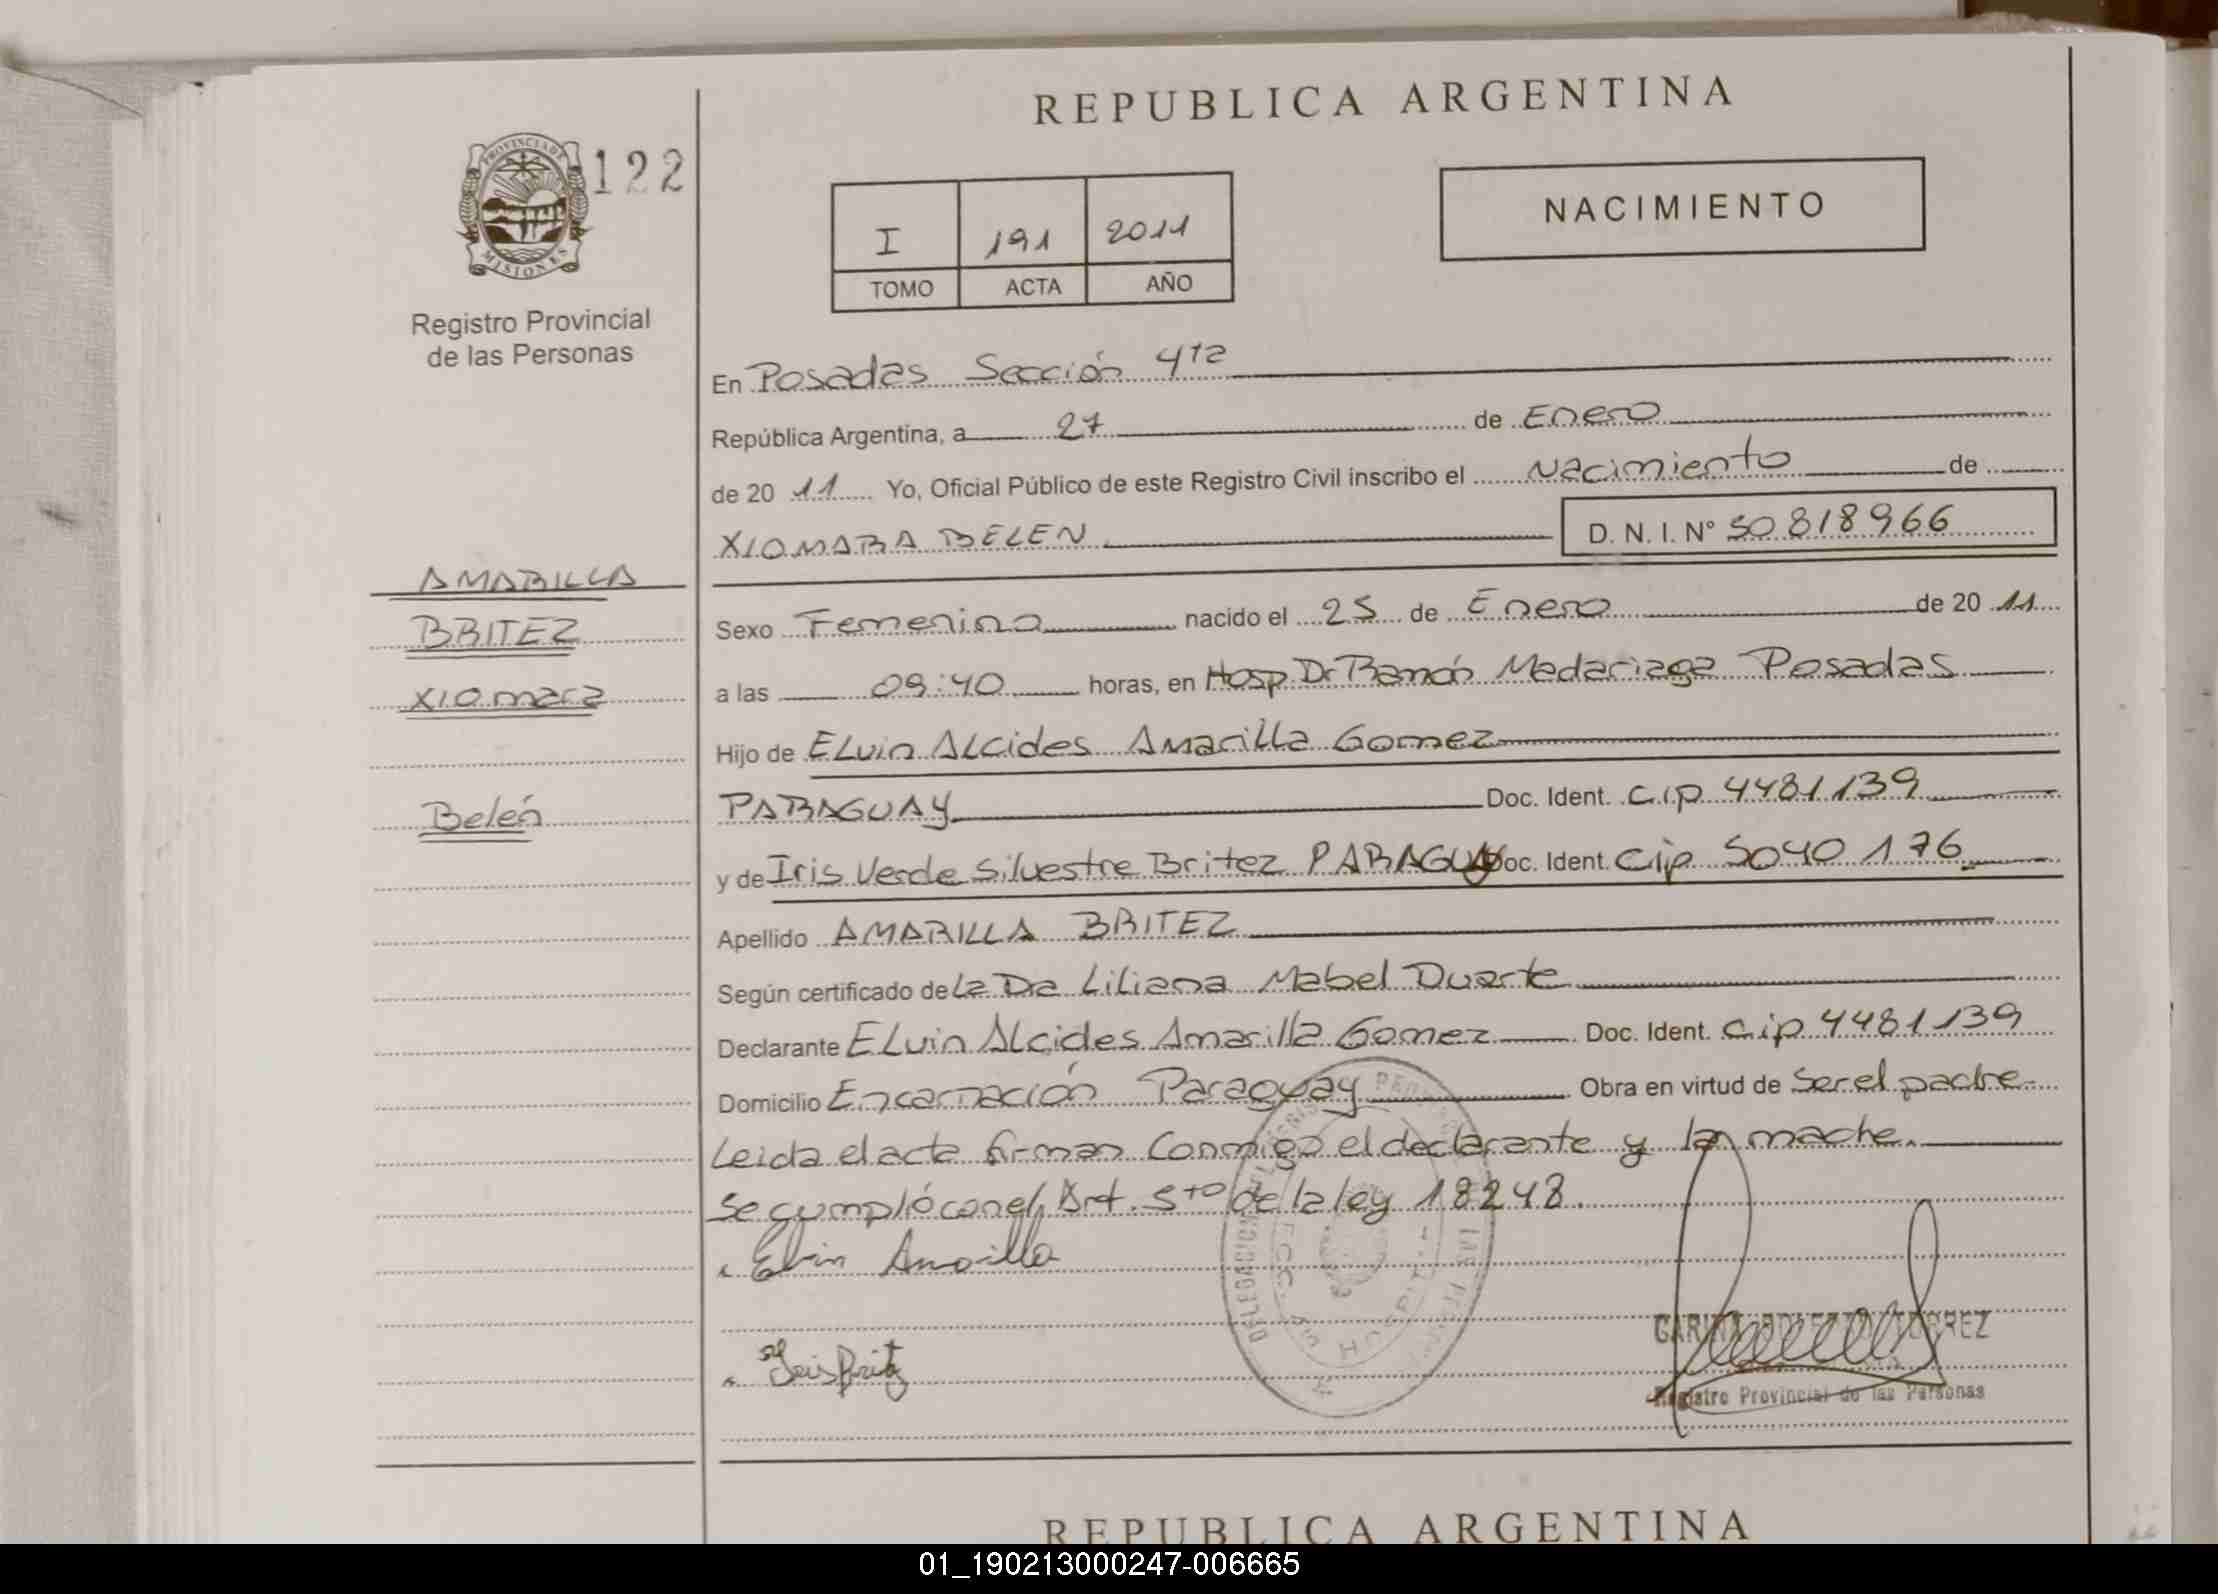 REPUBLICA ARGENTINA
PROVINCIA DE
MISIONES
122
Registro Provincial
de las Personas
I 191 2011
TOMO ACTA AÑO
NACIMIENTO
En Posadas Sección 4ta
República Argentina, a 27 de Enero
de 20 11 Yo, Oficial Público de este Registro Civil inscribo el Nacimiento de
XIOMARA BELEN D. N. I. N° 50818966
AMARILLA
BRITEZ
Xiomara
Belén
Sexo Femenino nacido el 25 de Enero de 20 11
a las 09:40 horas, en Hosp Dr Ramón Madariaga Posadas
Hijo de Elvin Alcides Amarilla Gomez
PARAGUAY Doc. Ident. C.I.P 4481139
y de Iris Verde Silvestre Britez PARAGUAY Doc. Ident. Cip 5040176
Apellido AMARILLA BRITEZ
Según certificado de La Dra Liliana Mabel Duarte
Declarante Elvin Alcides Amarilla Gomez Doc. Ident. C.i.p 4481139
Domicilio Encarnación Paraguay Obra en virtud de Ser el padre
Leida el acta firman Conmigo el declarante y la madre.
Se cumplió con el Art. 5to de la ley 18248.
Elvin Amarilla
Registro Provincial de las Personas
REPUBLICA ARGENTINA
01_190213000247-006665